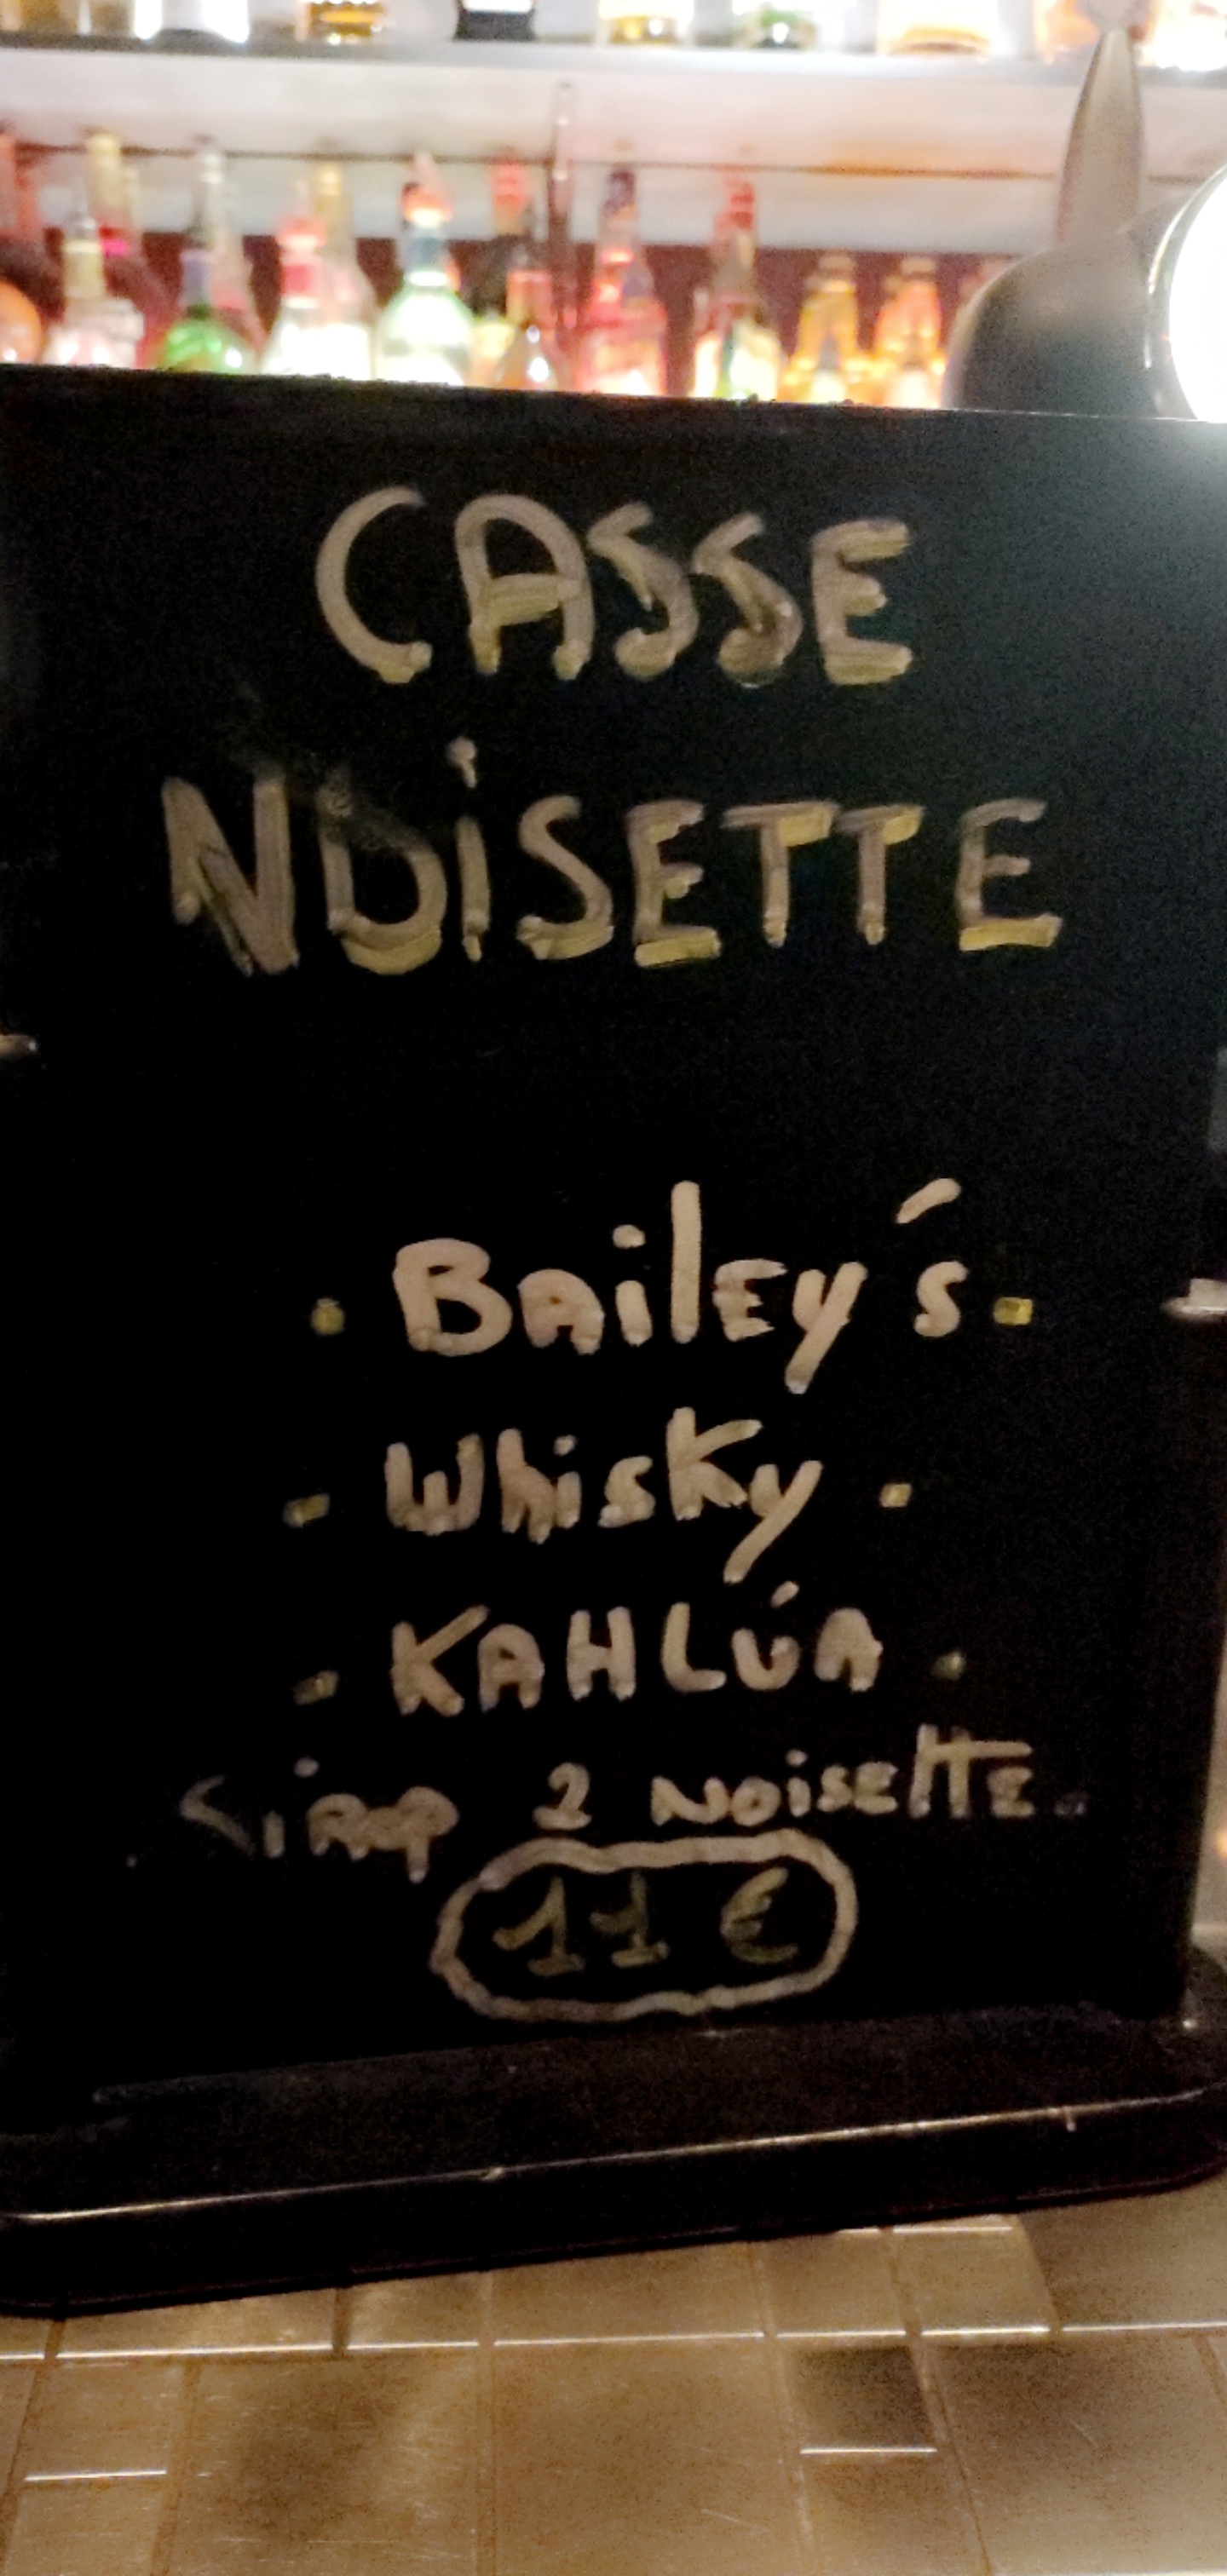 CASSE
NOiSETTE
Bailey's
Whisky
KAHLúA
Sirop 2 Noisette
11 €